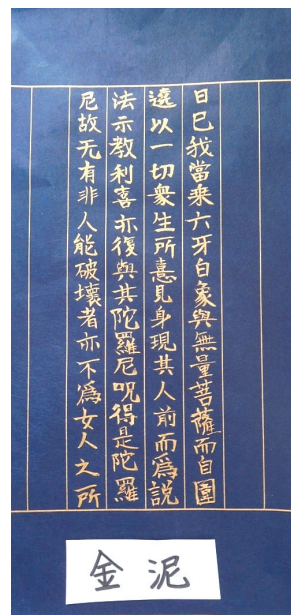 日已我當乘六牙白象與無量菩薩而自圍
遶以一切衆生所憙見身現其人前而爲說
法示教利喜亦復與其陀羅尼呪得是陀羅
尼故无有非人能破壞者亦不爲女人之所
金泥